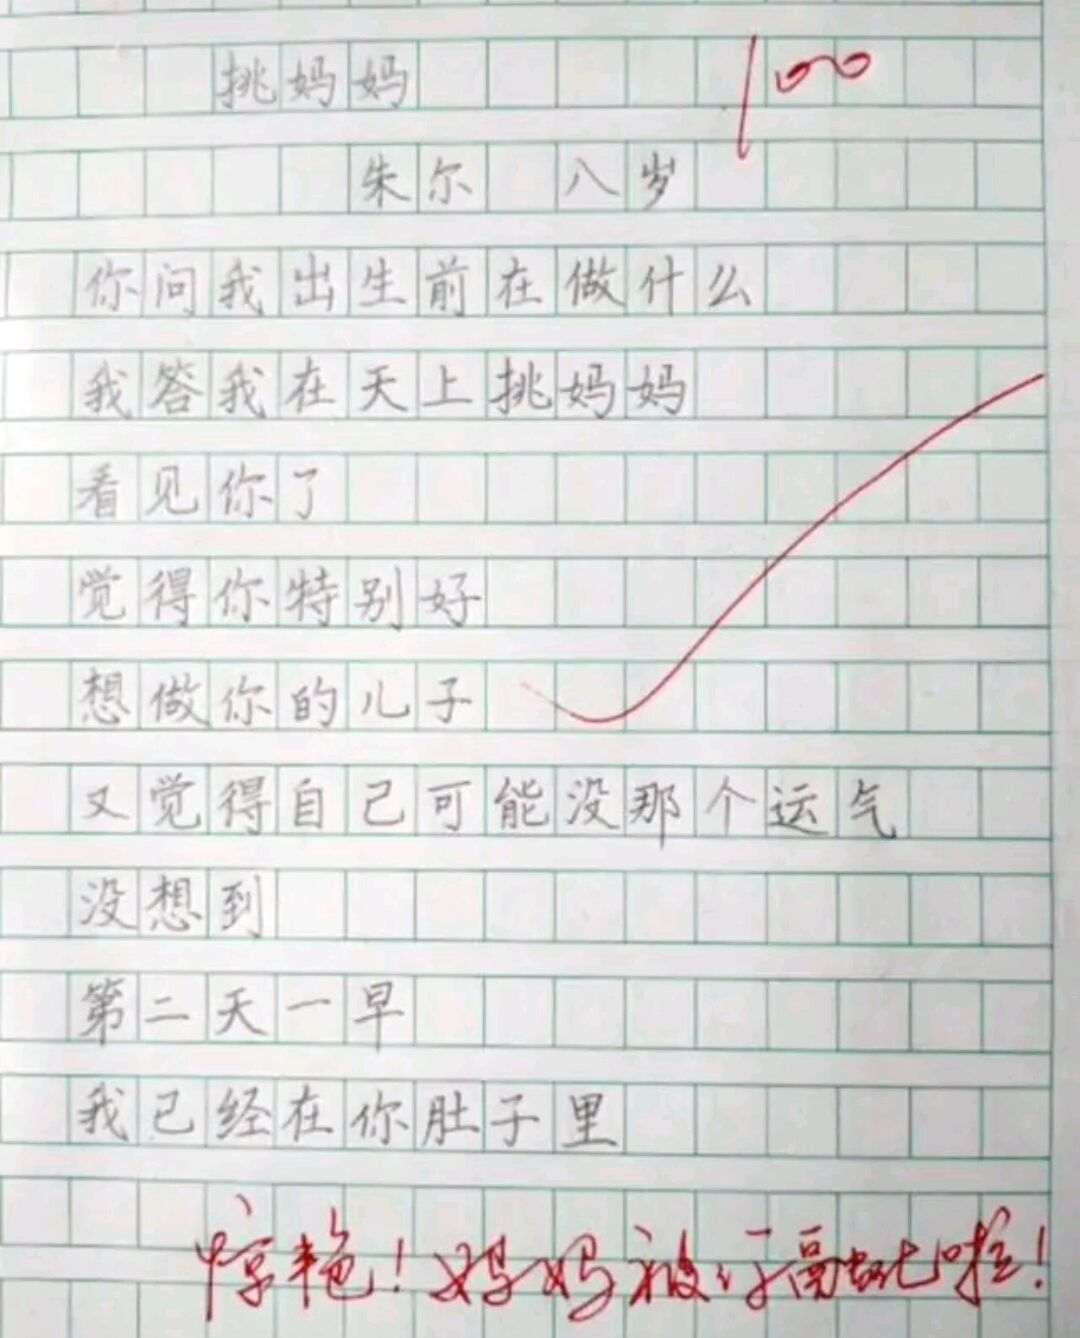 挑妈妈
100
朱尔 八岁
你问我出生前在做什么
我答我在天上挑妈妈
看见你了
觉得你特别好
想做你的儿子
又觉得自己可能没那个运气
没想到
第二天一早
我已经在你肚子里
惊艳！妈妈被你酥啦！